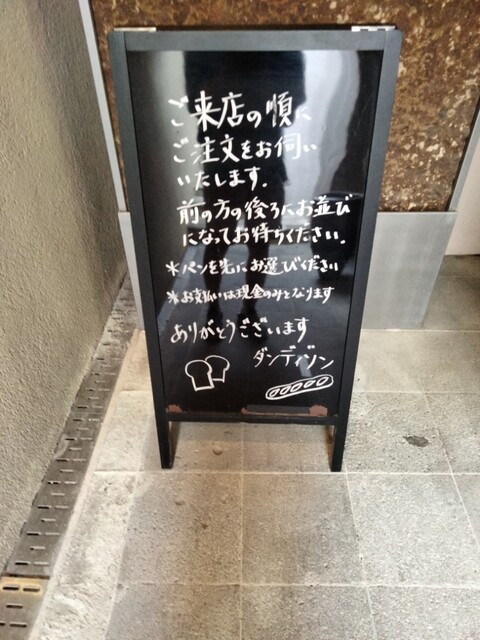 ご来店の順に
ご注文をお伺い
いたします.
前の方の後ろにお並び
になってお待ちください.
*パンを先にお選びください
*お支払いは現金のみとなります
ありがとうございます
ダンディゾン